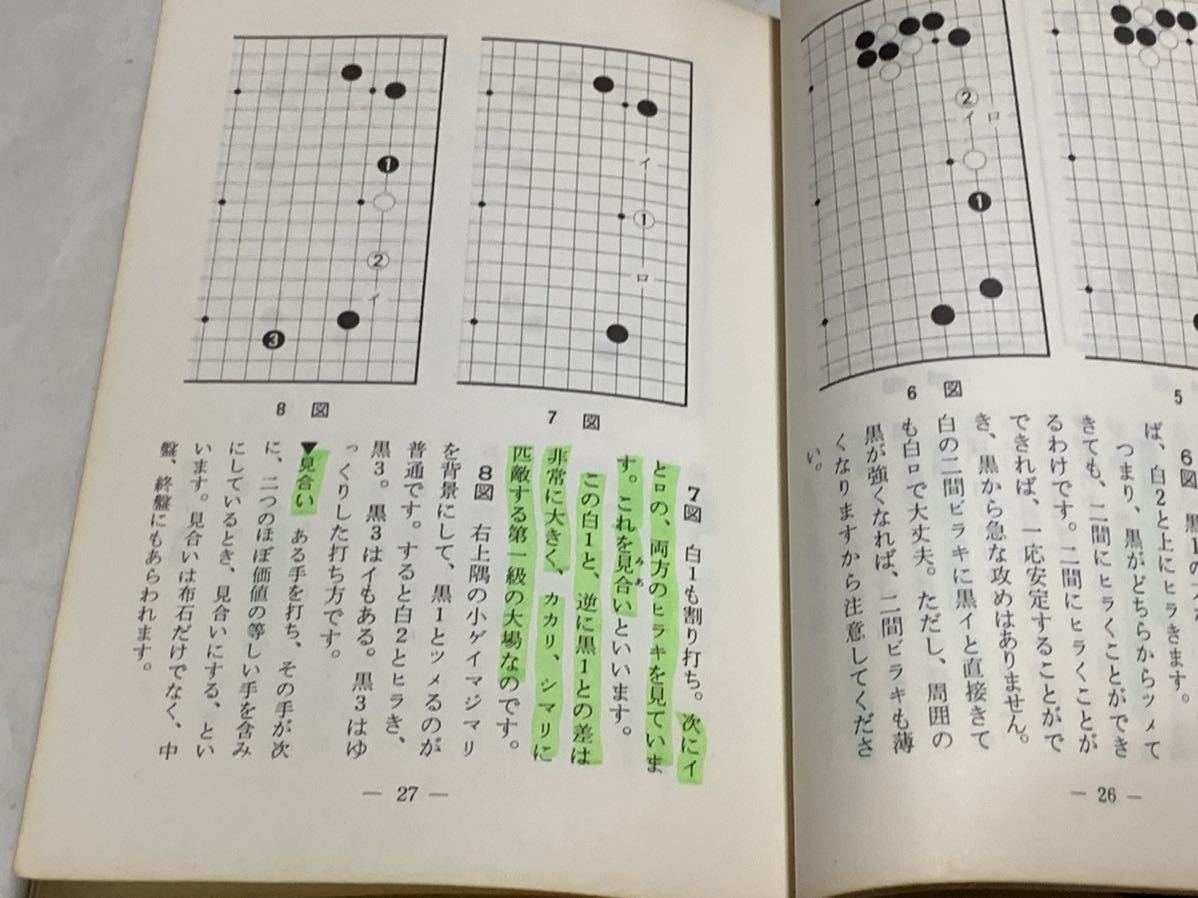 5
6 図
② イ ロ
❶
6図 黒1の
ば、白2と上にヒラきます。
つまり、黒がどちらからツメて
きても、二間にヒラくことができ
るわけです。二間にヒラくことが
できれば、一応安定することがで
き、黒から急な攻めはありません。
白の二間ビラキに黒イと直接きて
も白ロで大丈夫。ただし、周囲の
黒が強くなれば、二間ビラキも薄
くなりますから注意してくださ
い。
— 26 —
イ
①
ロ
7 図
❶
②
イ
❸
8 図
7図 白1も割り打ち。次にイ
とロの、両方のヒラキを見ていま
す。これを見合いといいます。
みあ
この白1と、逆に黒1との差は
非常に大きく、カカリ、シマリに
匹敵する第一級の大場なのです。
8図 右上隅の小ゲイマジマリ
を背景にして、黒1とツメるのが
普通です。すると白2とヒラき、
黒3。黒3はイもある。黒3はゆ
っくりした打ち方です。
▼見合い ある手を打ち、その手が次
に、二つのほぼ価値の等しい手を含み
にしているとき、見合いにする、とい
います。見合いは布石だけでなく、中
盤、終盤にもあらわれます。
— 27 —